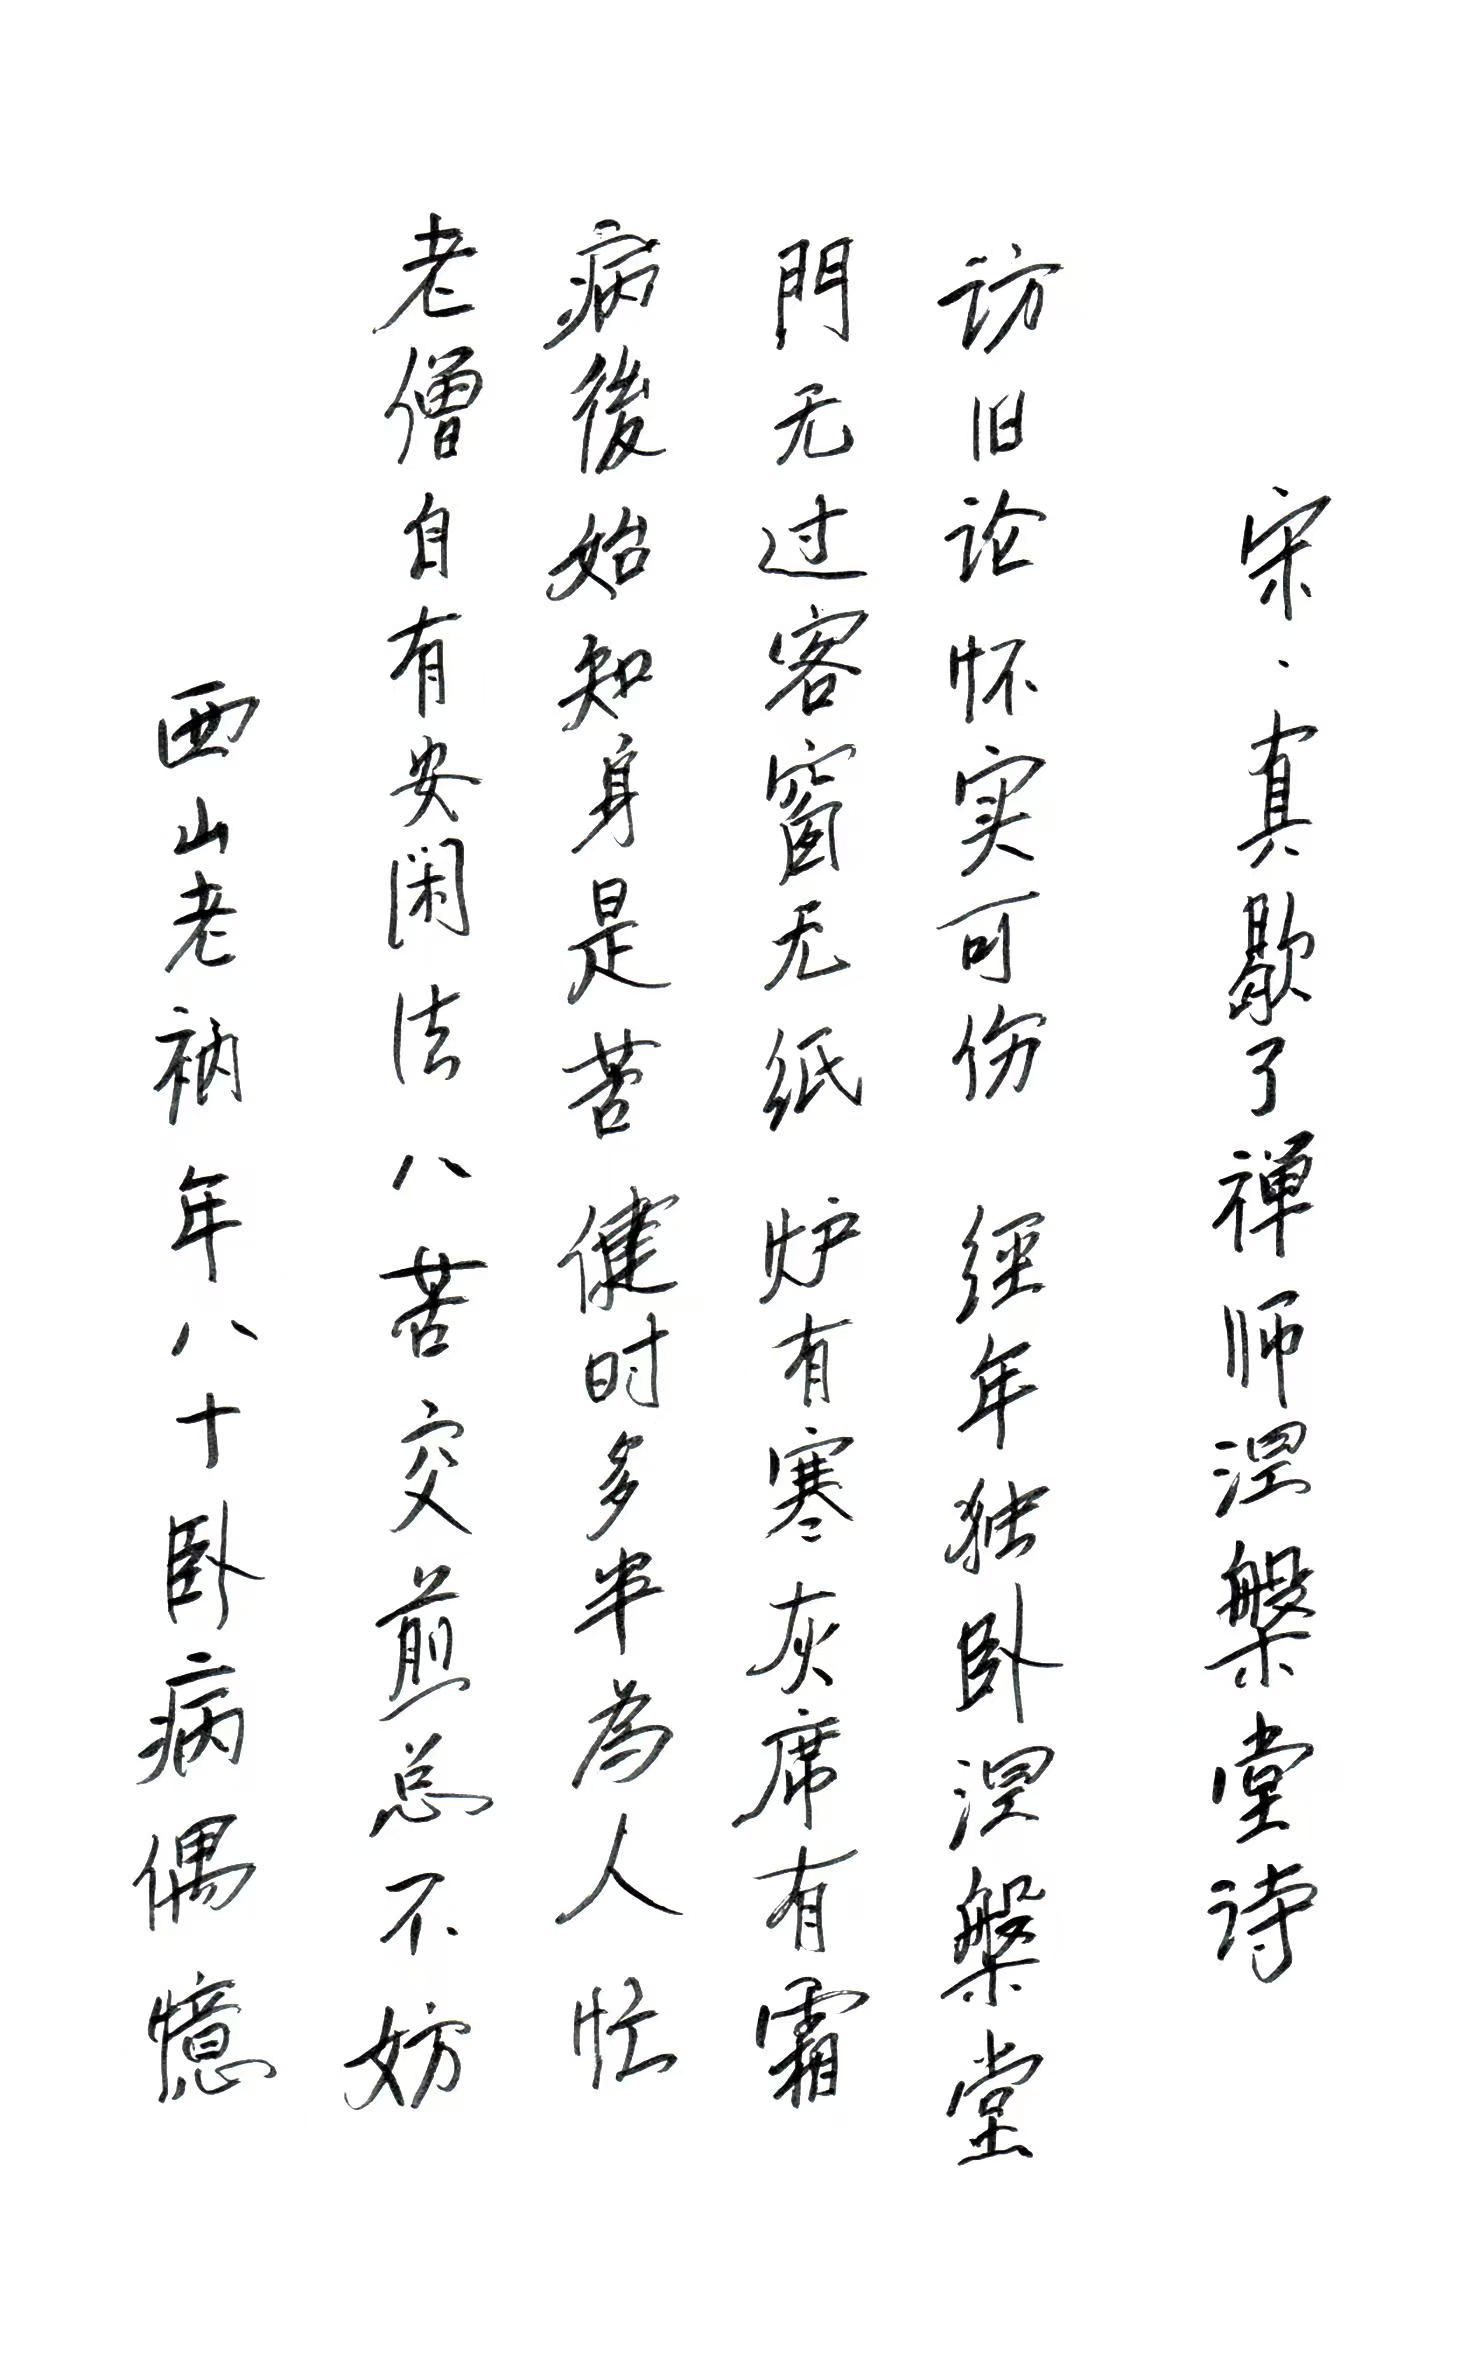 宋·真歇了禅师涅槃堂诗
访旧论怀实可伤 经年独卧涅槃堂
門无过客窗无纸 炉有寒灰席有霜
病後始知身是苦 健时多半为人忙
老僧自有安闲法 八苦交煎总不妨
西山老衲年八十卧病偶憶